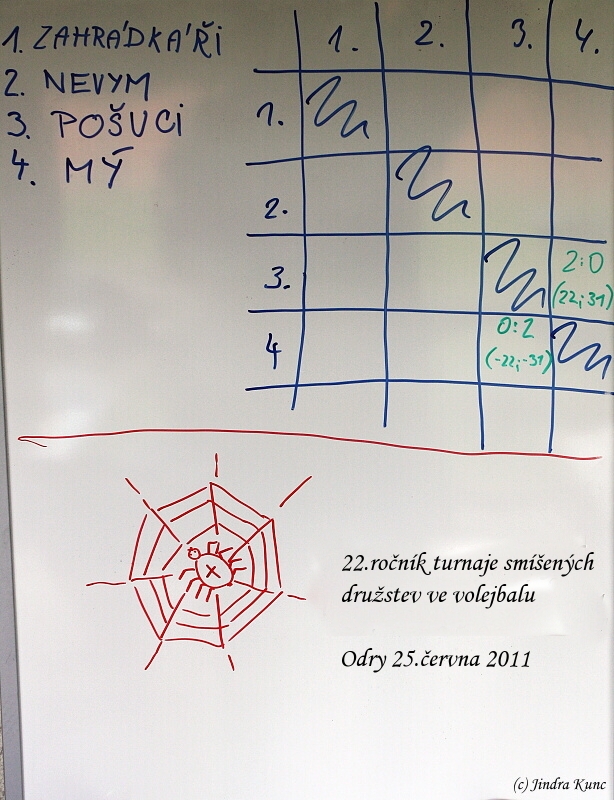 1. ZAHRÁDKÁŘI
2. NEVYM
3. POŠUCI
4. MÝ
1. 2. 3. 4.
1.
2.
3. 2:0
(22;31)
4 0:2
(-22;-31)
x
22.ročník turnaje smíšených
družstev ve volejbalu
Odry 25.června 2011
(c) Jindra Kunc